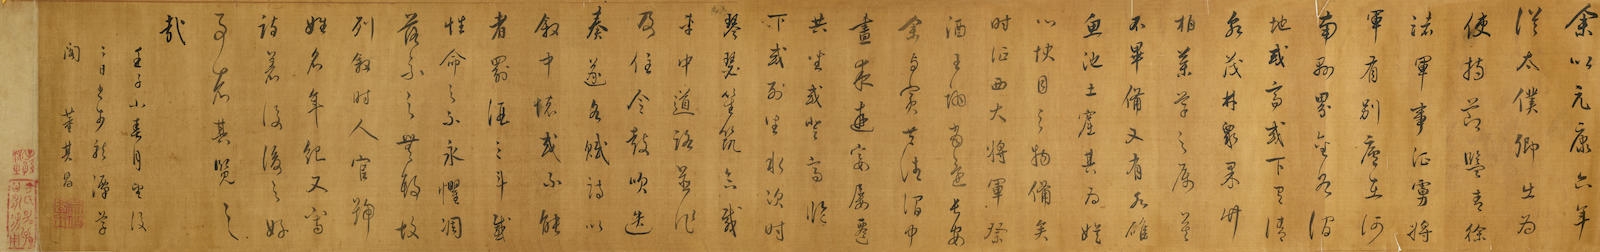 余以元康六年
從太僕卿出為
使持節監青徐
諸軍事征虜將
軍有別廬在河
南縣界金谷澗
地或高或下有清
泉茂林眾果竹
柏藥草之屬莫
不畢備又有水碓
魚池土窟其為娛
心快目之物備矣
时征西大將軍祭
酒王詡當還長安
余与 澗中
晝夜遊宴屢遷
其坐或登高臨
下或列坐水次时
琴瑟笙筑合載
車中道路並作
及住令鼓吹迭
奏遂各賦詩以
敘中懷或不能
者罰酒三斗感
性命之不永懼凋
落 之無期故
列敘时人官號
姓名年紀又寫
詩著後後之好
事者其覽之
哉
壬子小春月望後
二日
閣 董其昌